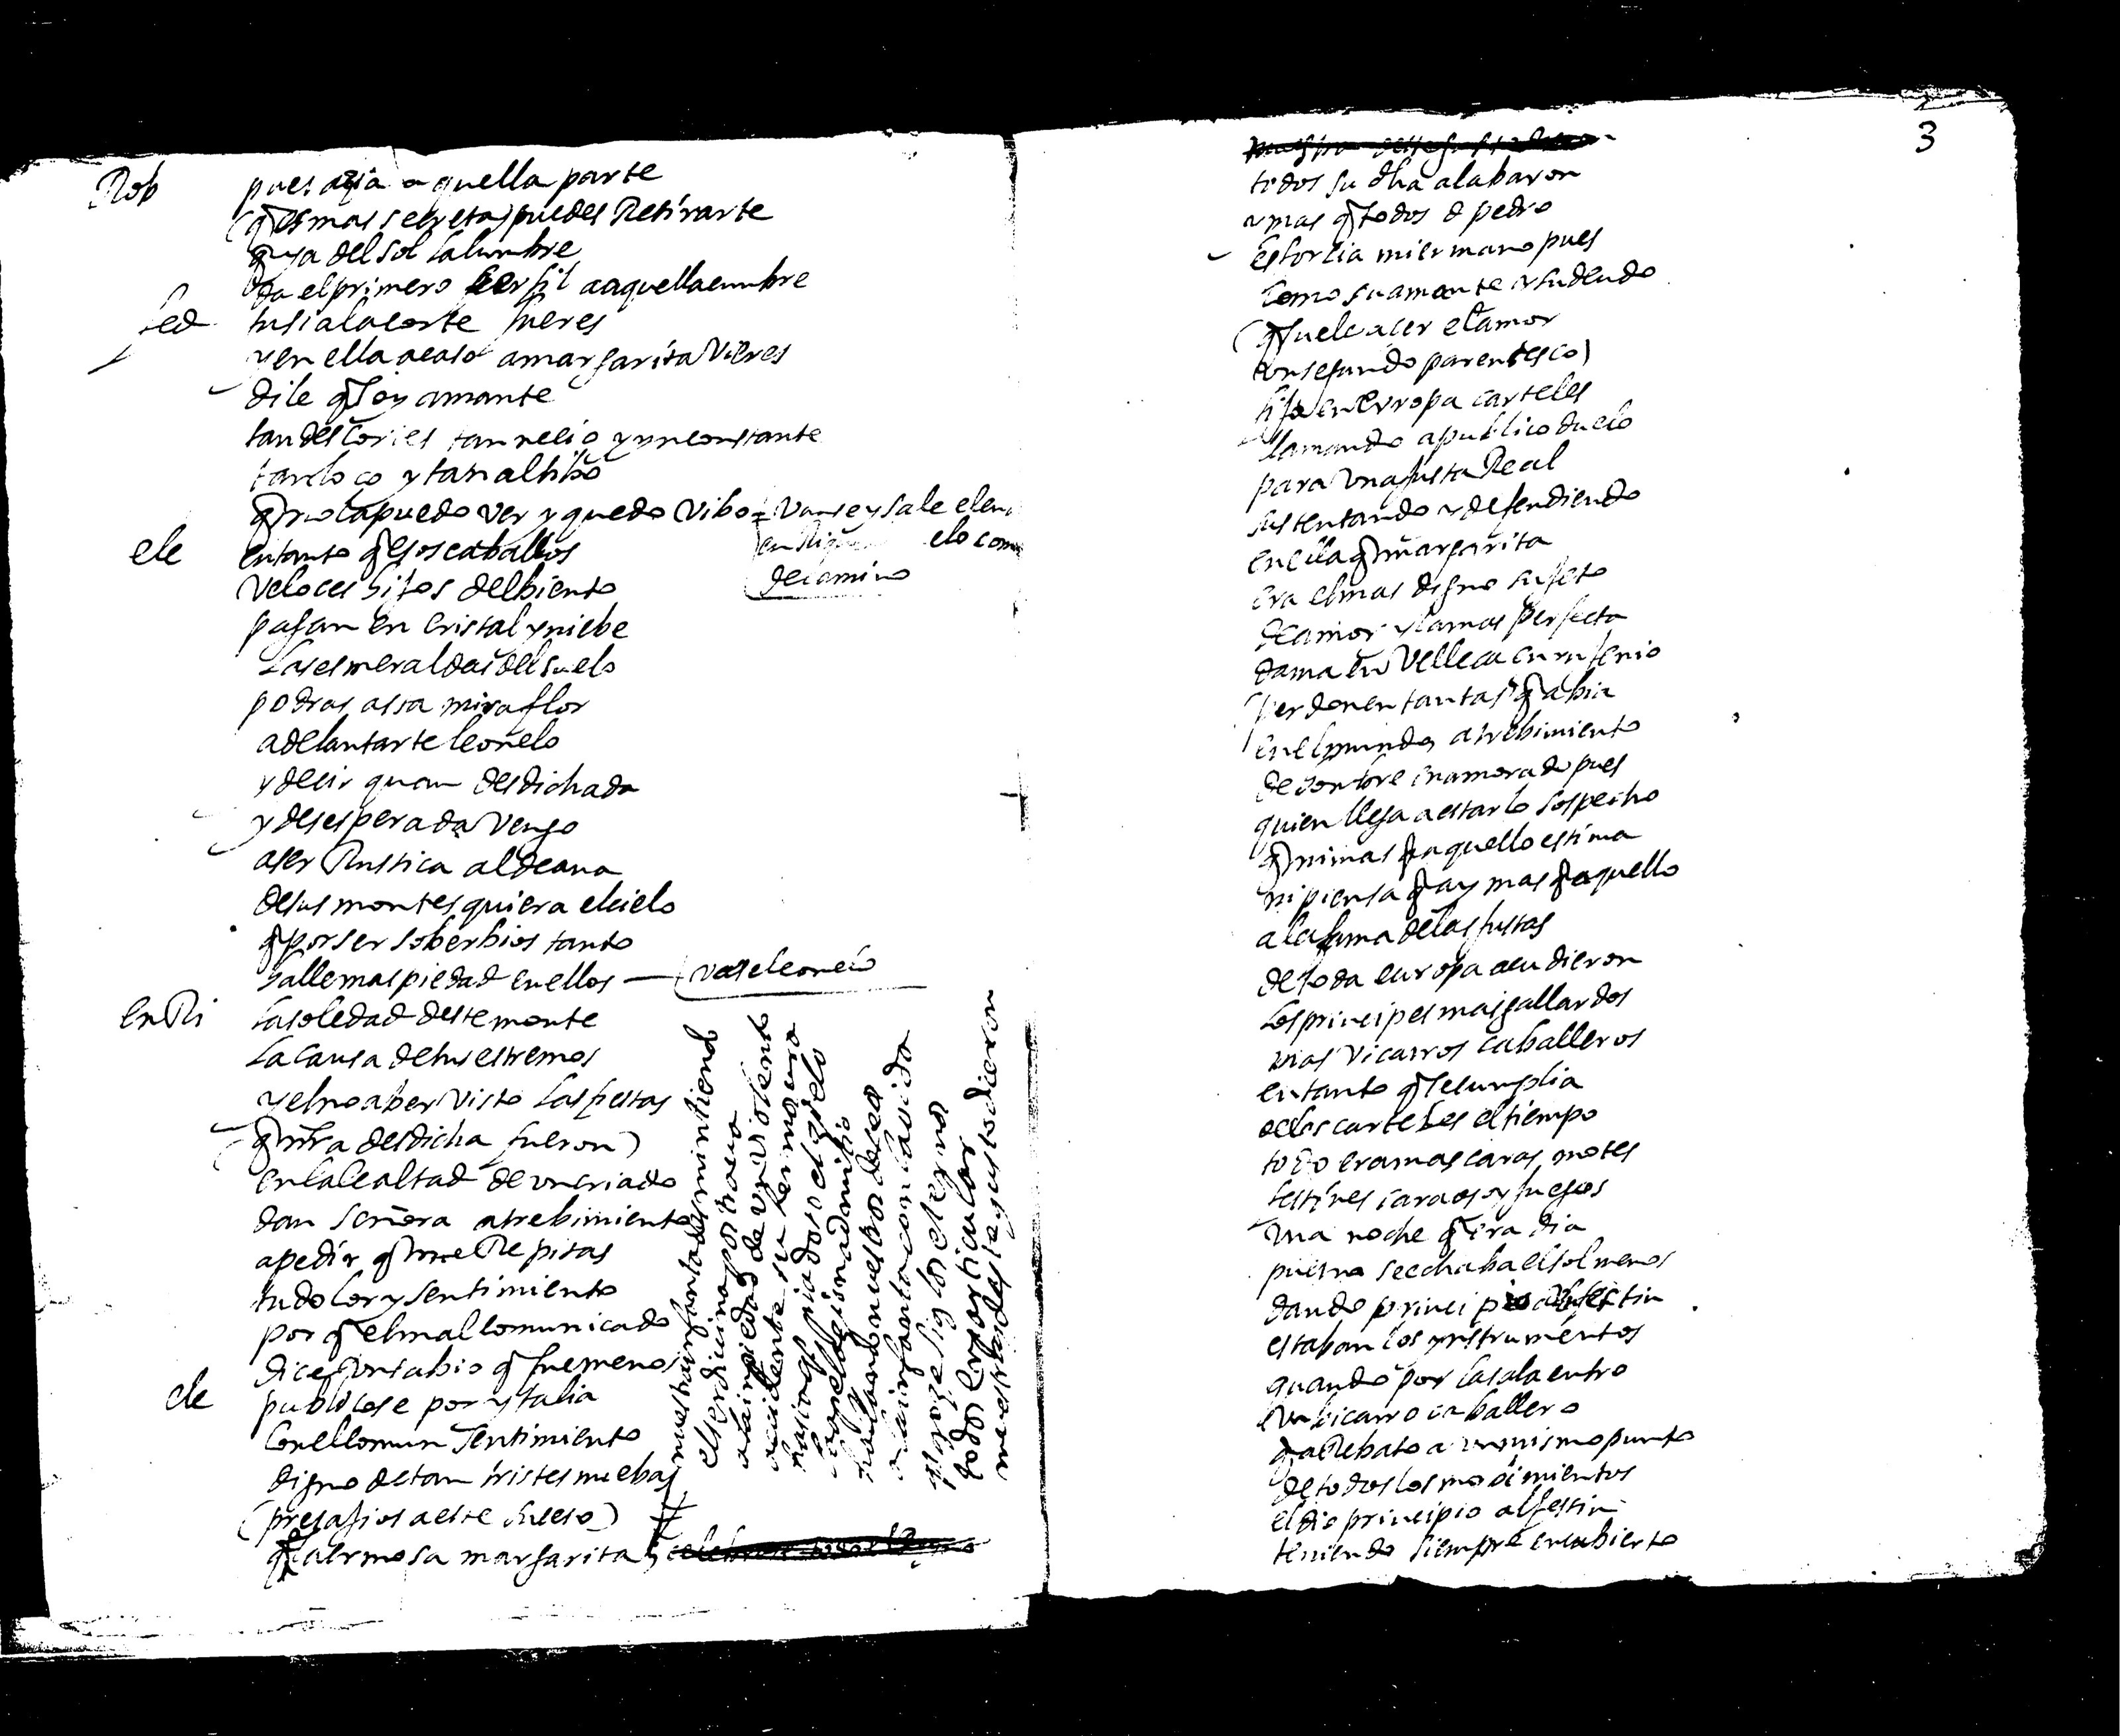 Rob pues azia aquella parte
(q es mas secreta) puedes Retirarte
q ya del sol la lumbre
da el primero perfil a aquella cumbre
fed tu si a la corte fueres
y en ella acaso a margarita vieres
dile q soy amante
tan descortes tan necio y ynconstante
tan loco y tan altibo
q no la puedo ver y quedo vibo = vanse y sale elen
en Riq elo com
de camino
ele en tanto q esos caballos
veloces hijos del biento
pasan en cristal y niebe
las esmeraldas del suelo
podras asta miraflor
adelantarte leonelo
y decir quan desdichada
y desesperada vengo
a ser Rustica aldeana
de sus montes quiera el cielo
q por ser soberbios tanto
halle mas piedad en ellos — vase leonelo
en Ri la soledad deste monte
la causa de tus estremos
y el no aber visto las fiestas
(q nra desdicha fueron)
en la lealtad de un criado
dan señora atrebimiento
a pedir q me Repitas
tu dolor y sentimiento
por q el mal comunicado
dice un sabio q fue menos
ele publicose por ytalia
con el comun sentimiento
digno de tan tristes nuebas
(presagios a este suceso)
q la ermosa margarita
nuestra infanta desmintiendo
el ser divina por
a la inpiedad de un violento
accidente su hermano
piadoso el cielo
nuestro deseo
a la infanta con la vida
siglos eternos
todos en particular
3
todos su dha alabaron
y mas q todos d pedro
esforcia mi ermano pues
como su amante y su deudo
(q suele acer el amor
un segundo parentesco)
fijo en evropa carteles
llamando a publico duelo
para una justa Real
sustentando y defendiendo
en ella q margarita
era el mas digno sujeto
de amor y la mas perfecta
dama en velleca en yngenio
(perdonen tantas q abia
en el mundo atrebimiento
de honbre enamorado pues
quien llega a estarlo sospecho
q ni mas q aquello estima
ni piensa q ay mas q aquello
a la fama de las justas
de toda europa acudieron
los principes mas gallardos
mas vicarros caballeros
en tanto q se cumplia
de los carteles el tiempo
todo era mascaras motes
festines saraos y juegos
una noche q era dia
pues no se echaba el sol menos
dando principio al festin
estaban los ynstrumentos
quando por la sala entro
un bicarro caballero
q aRebato a un mismo punto
de todos los mobimientos
el dio principio al festin
teniendo siempre encubierto